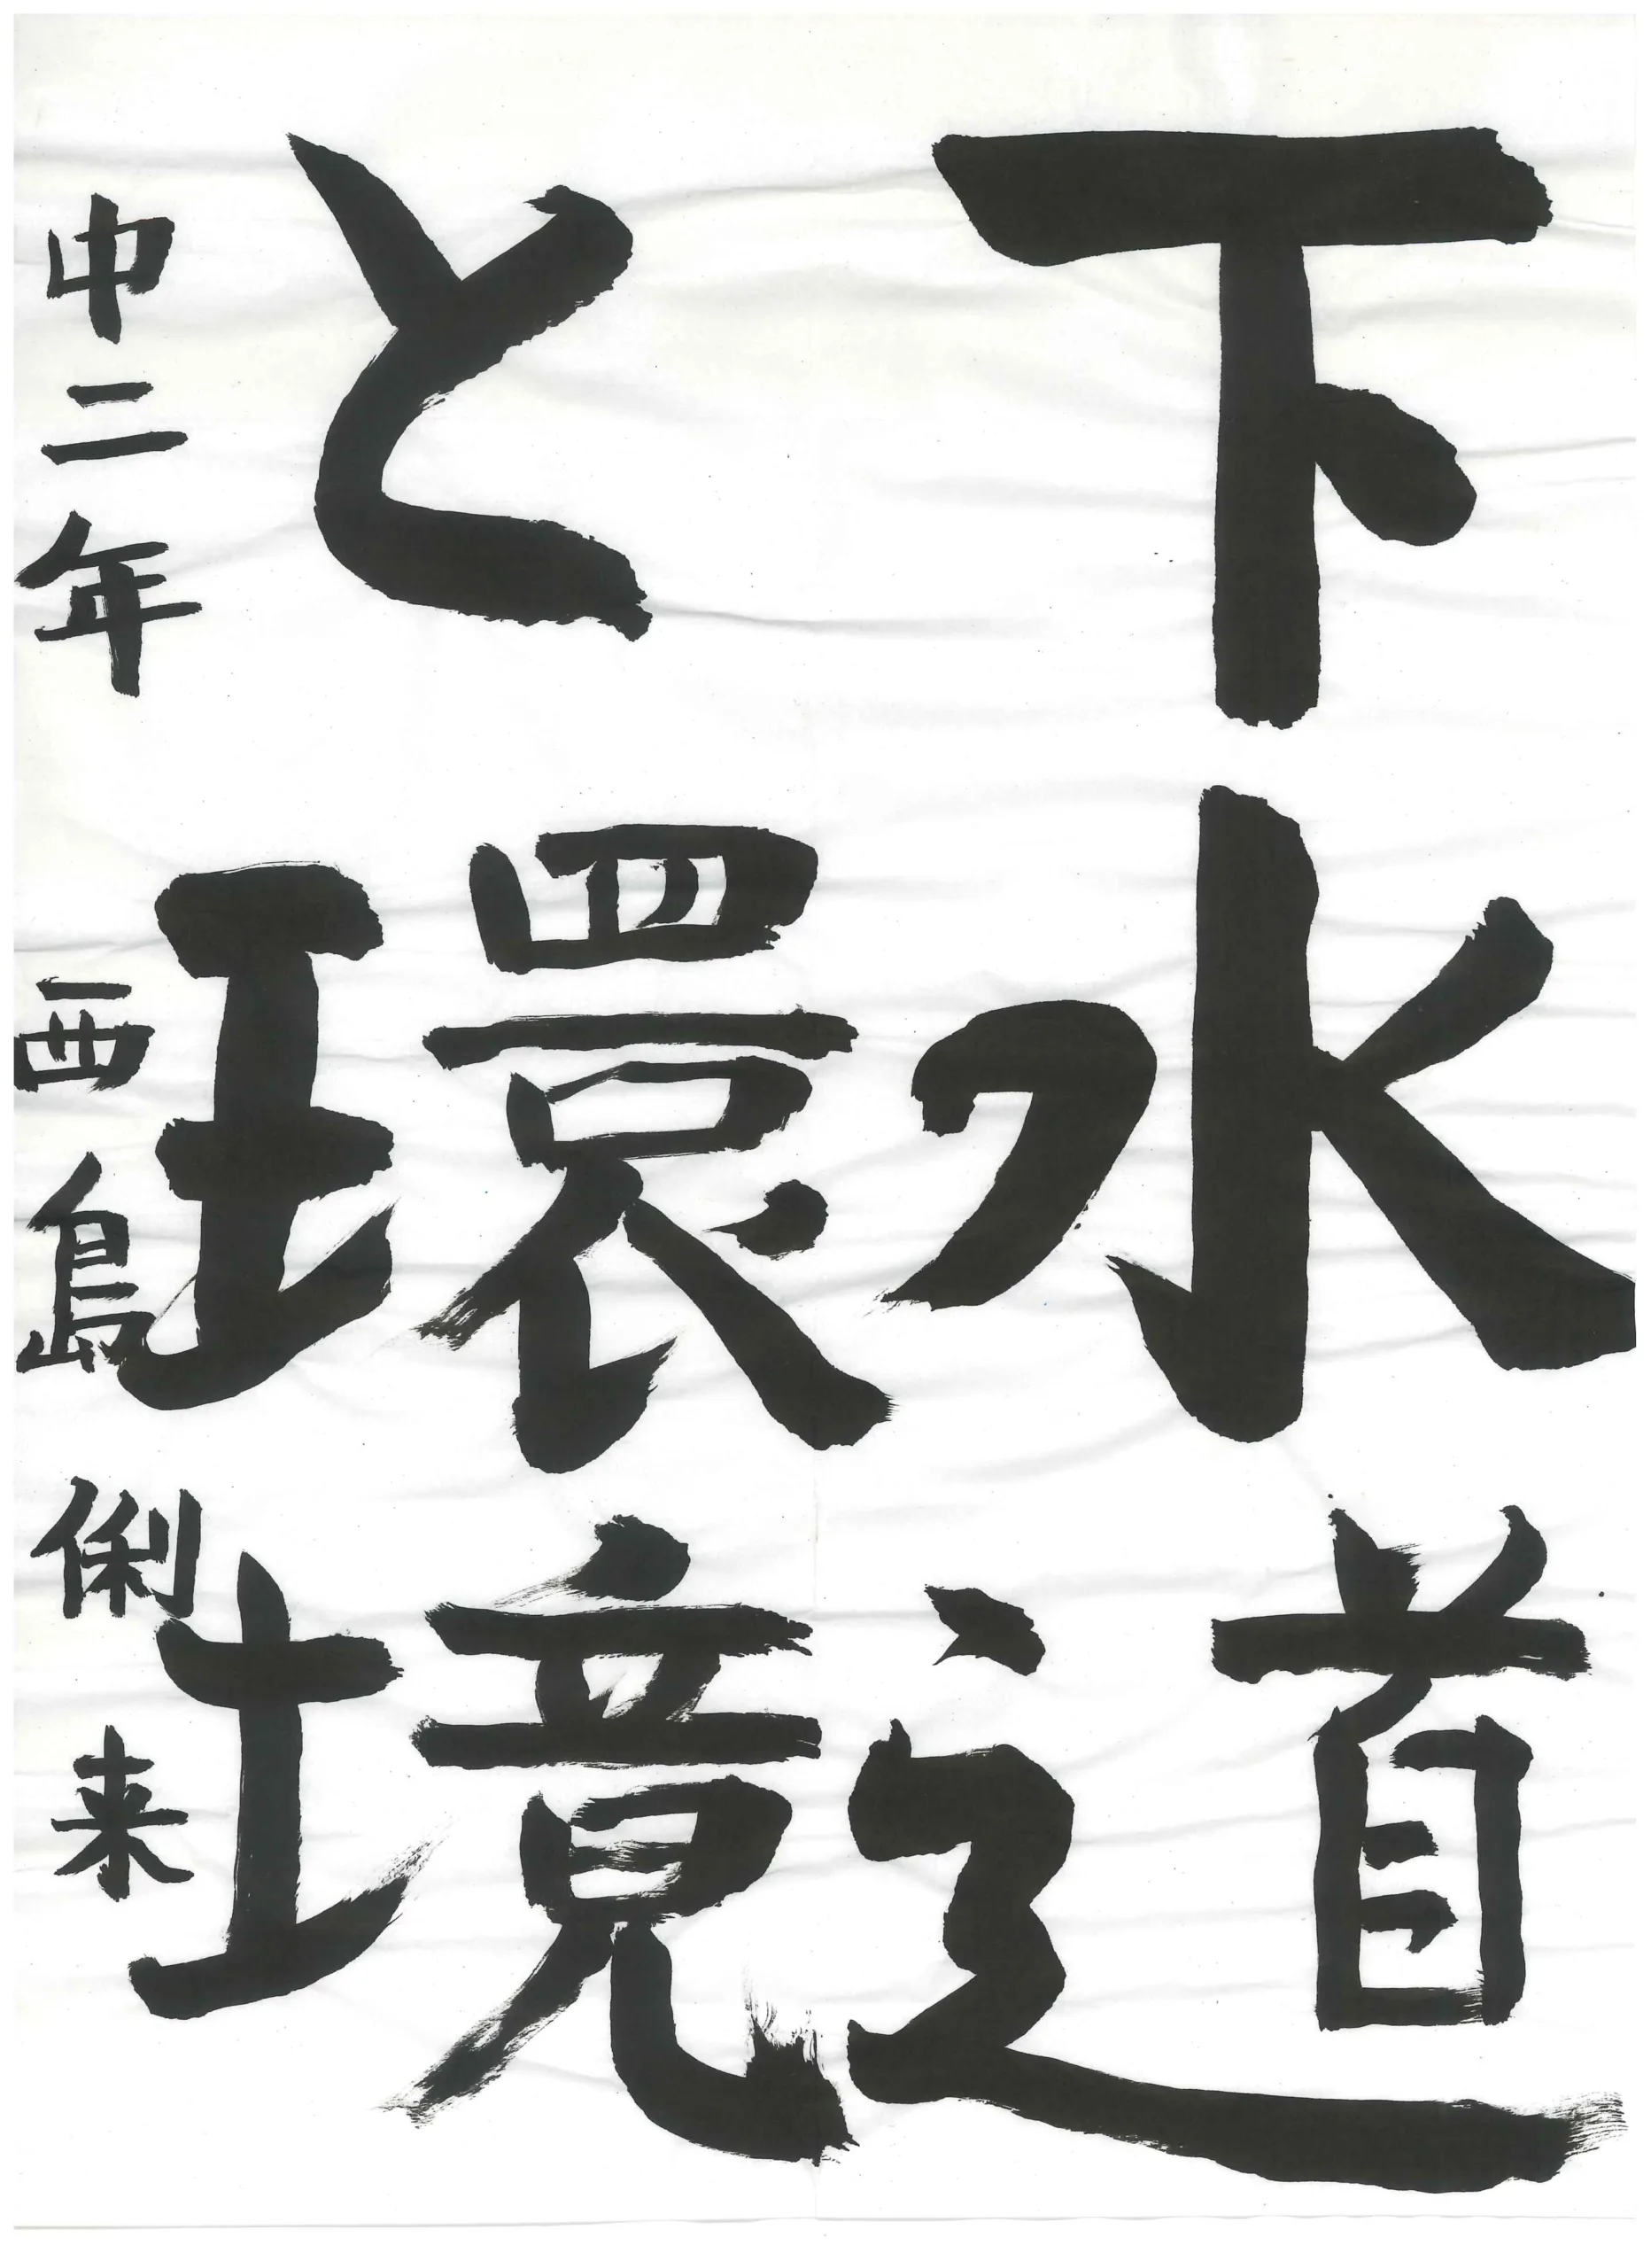 下水道
と環境
中二年 西島 俐来